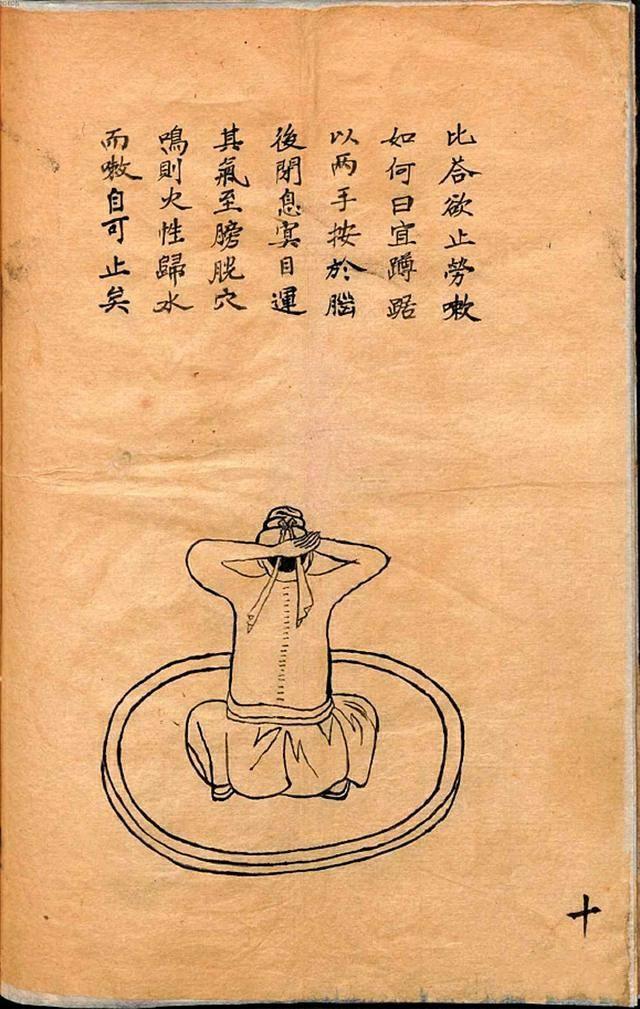 比荅欲止勞嗽
如何曰宜蹲踞
以两手按於腦
後閉息寞目運
其氣至膀胱穴
鳴則火性歸水
而嗽自可止矣
十